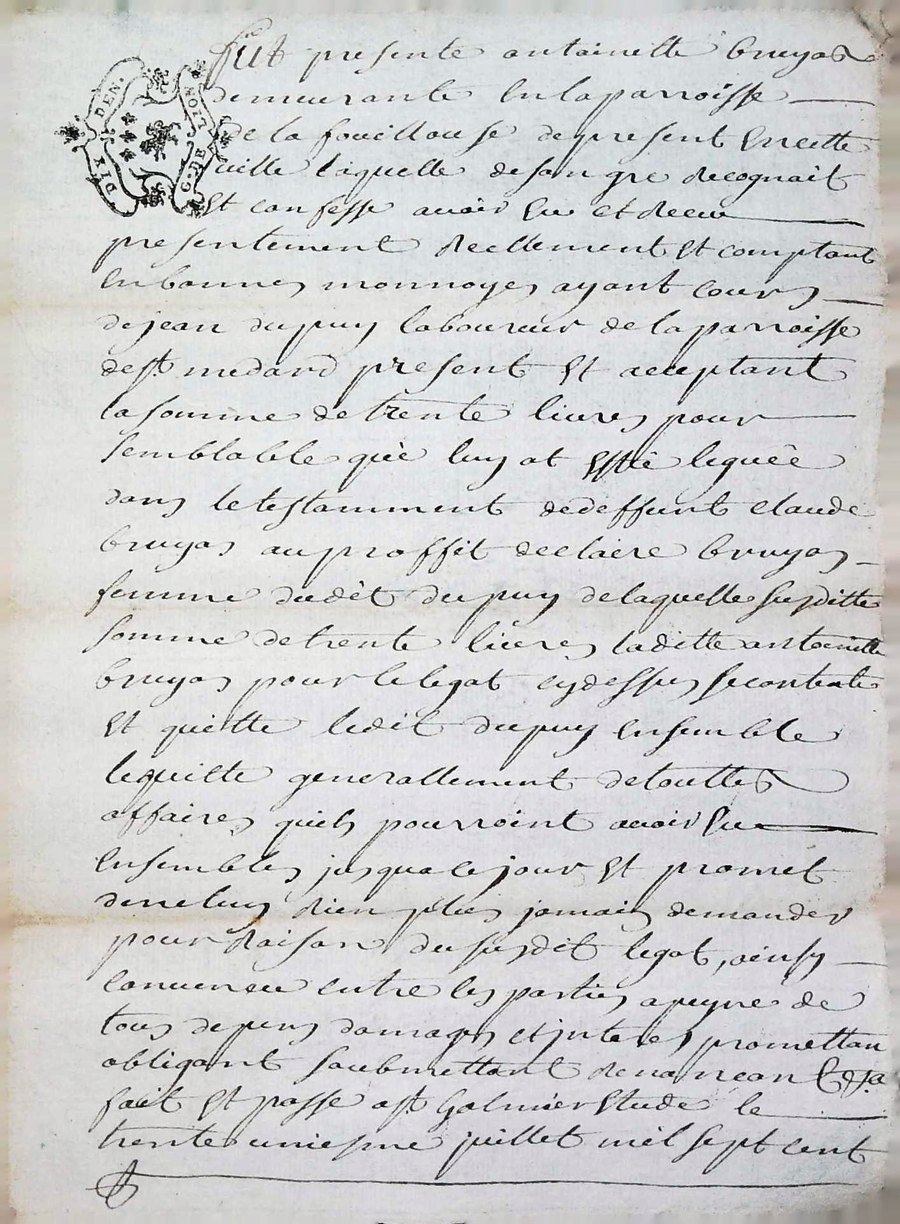 DIX DEN.
G. DE LION
fut presente antoinette bruyas
demeurante en la parroisse
de la fouillouse de present en cette
ville laquelle de son gre recognoit
et confesse avoir eu et receu
presentement reellement et comptant
en bonnes monnoyes ayant cours
de jean dupuy laboureur de la parroisse
de st medard present et acceptant
la somme de trente livres pour
semblable que luy at esté leguée
dans le testamment de deffunt claude
bruyas au proffit de claire bruyas
femme dudit dupuy de laquelle susditte
somme de trente livres laditte antoinette
bruyas pour le legat cy dessus se contente
et quitte ledit dupuy ensemble
le quitte generallement de touttes
affaires quils pourroint avoir eu
ensembles jusqua ce jour et promet
de ne luy rien plus jamais demander
pour raison du susdit legat, ainsy
convenu entre les parties a peyne de
tous depens domages et interes promettan
obligant soubmettant renoncant &
fait et passe a st Galmier etude le
trente uniesme juillet mil sept cent